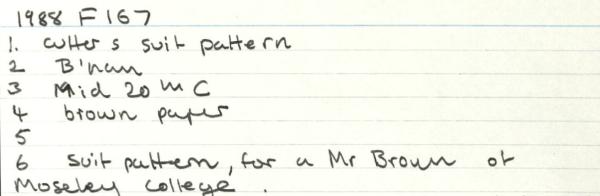 1988 F167
1. cutters suit pattern
2 B'ham
3 Mid 20th C
4 brown paper
5
6 suit pattern, for a Mr Brown of
Moseley College.